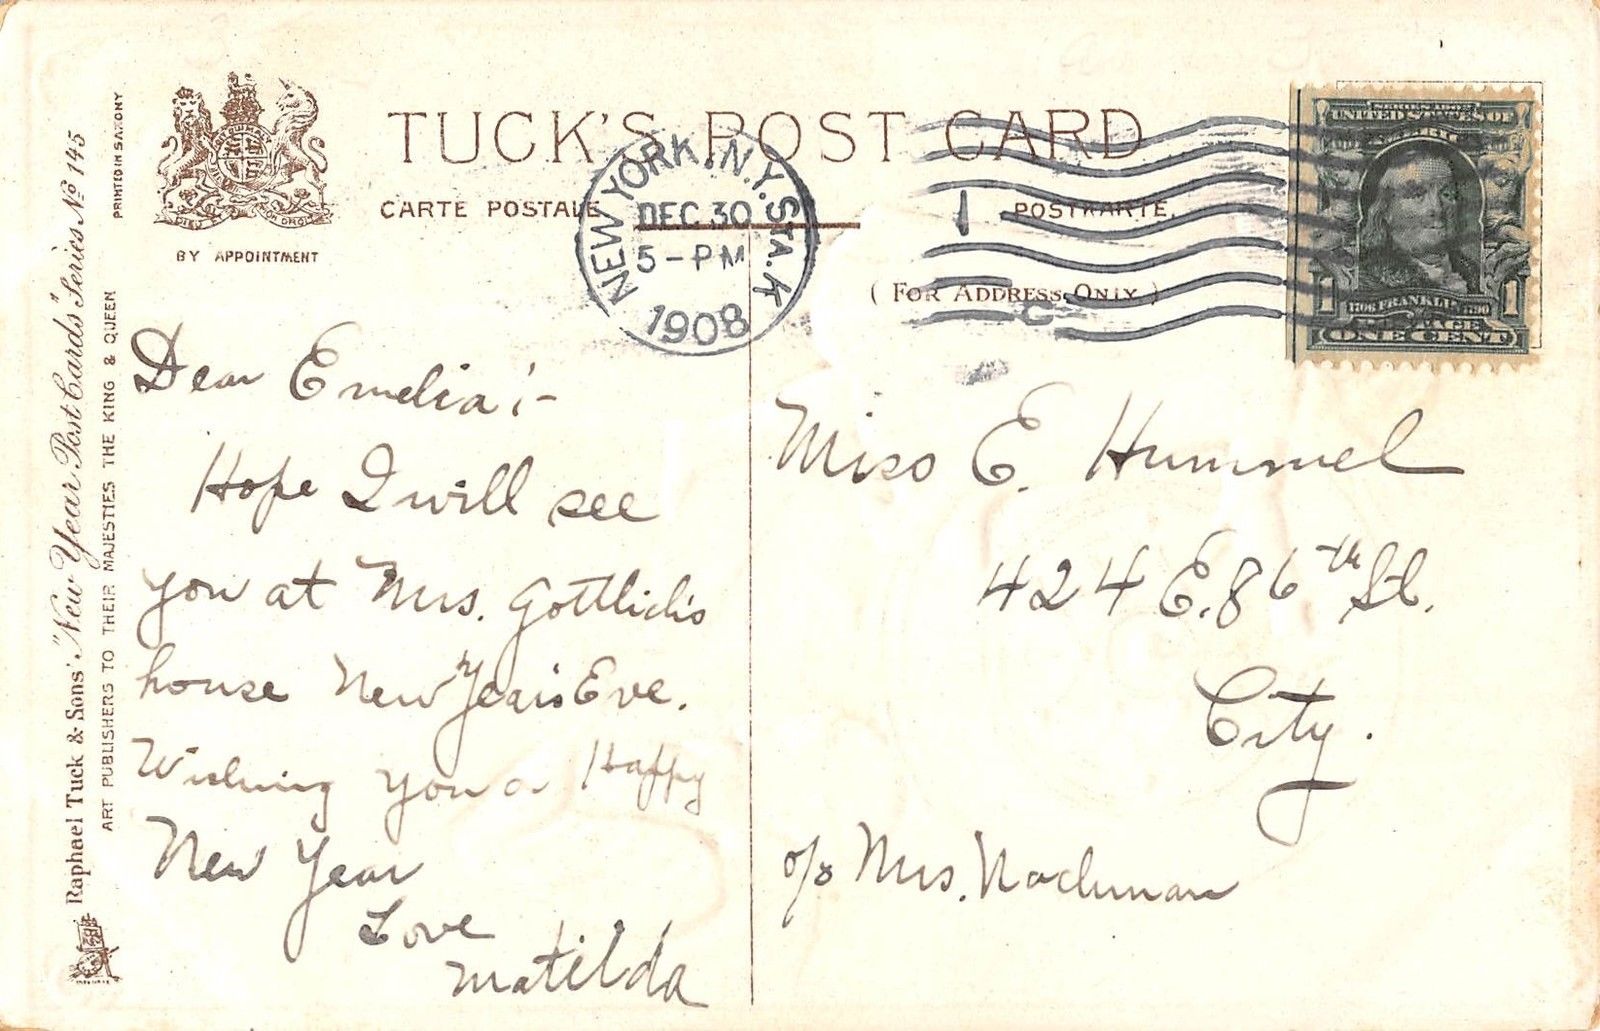 TUCK'S POST CARD
CARTE POSTALE
POSTKARTE.
BY APPOINTMENT
( FOR ADDRESS ONLY )
NEW YORK, N.Y. STA. K
DEC 30
5-PM
1908
1
C
SERIES 1902
UNITED STATES OF
AMERICA
1706 FRANKLIN 1790
POSTAGE
1 ONE CENT 1
PRINTED IN SAXONY
Raphael Tuck & Sons' "New Year Post Cards" Series No 145
ART PUBLISHERS TO THEIR MAJESTIES THE KING & QUEEN
Dear Emelia:-
Hope I will see
you at Mrs. Gottlieb's
house New Year's Eve.
Wishing you a Happy
New Year
Love
Matilda
Miss E. Hummel
424 E. 86th St.
City.
c/o Mrs. Nachman